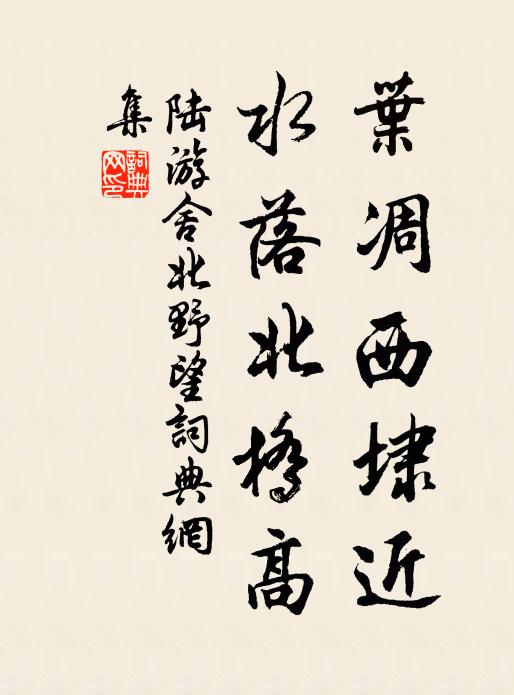 葉凋西埭近
水落北橋高
陆游舍北野望詞典網
集
詞典網印